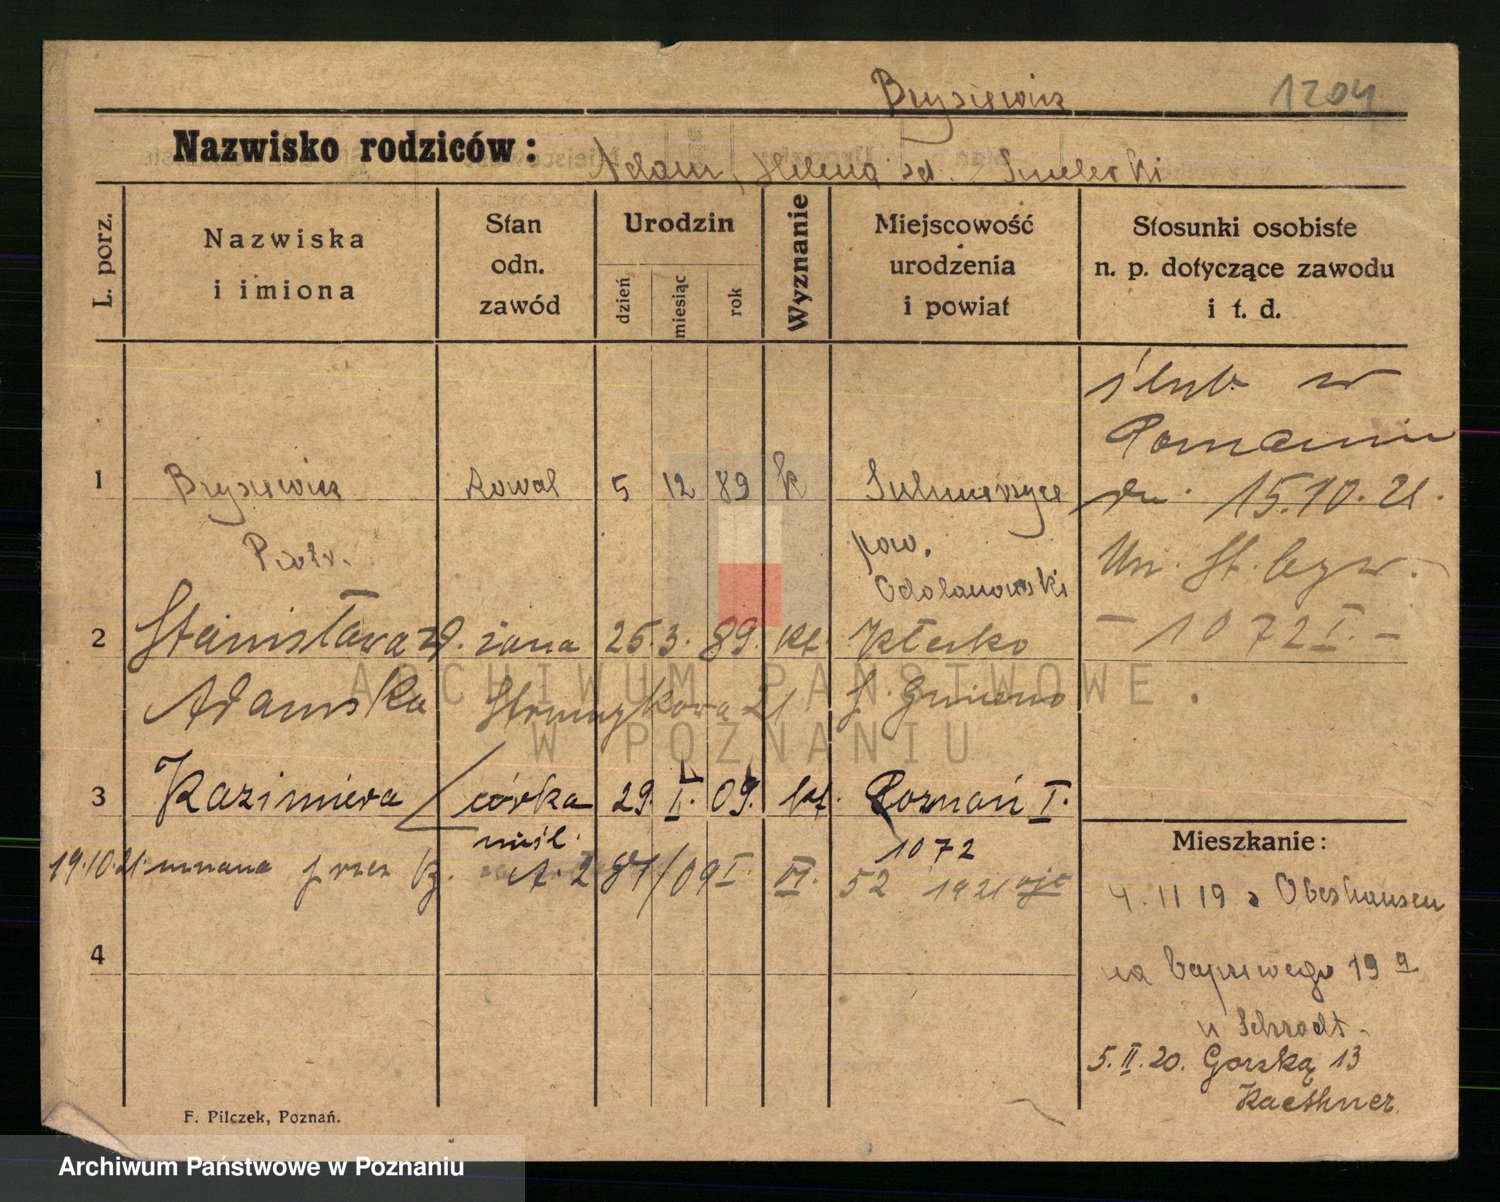 Brysiewicz 1204
Nazwisko rodziców:
Adam, Helena zd. Smelecki
L. porz.
Nazwiska
i imiona
Stan
odn.
zawód
Urodzin
dzień
miesiąc
rok
Wyznanie
Miejscowość
urodzenia
i powiat
Stosunki osobiste
n. p. dotyczące zawodu
i t. d.
ślub w
Poznaniu
dn. 15.10.21.
Un. St. cyw.
– 1072 I. –
1 Brysiewicz kowal 5 12 89 k Sulmierzyce
Piotr. pow.
Odolanowski
2 Stanisława zd. żona 26. 3. 89. kt. Kłecko
Adamska 21 Gniezno
3 Kazimiera córka 29. I. 09. kt. Poznań I.
1072
19.10.21 przez 87/09 I. VI. 52 1921
4
Mieszkanie:
4. 11 19 z Obeshausen
na 19 a
u Schrodt
5. II. 20. Gorską 13
Kaethner
F. Pilczek, Poznań.
ARCHIWUM PAŃSTWOWE
W POZNANIU
Archiwum Państwowe w Poznaniu